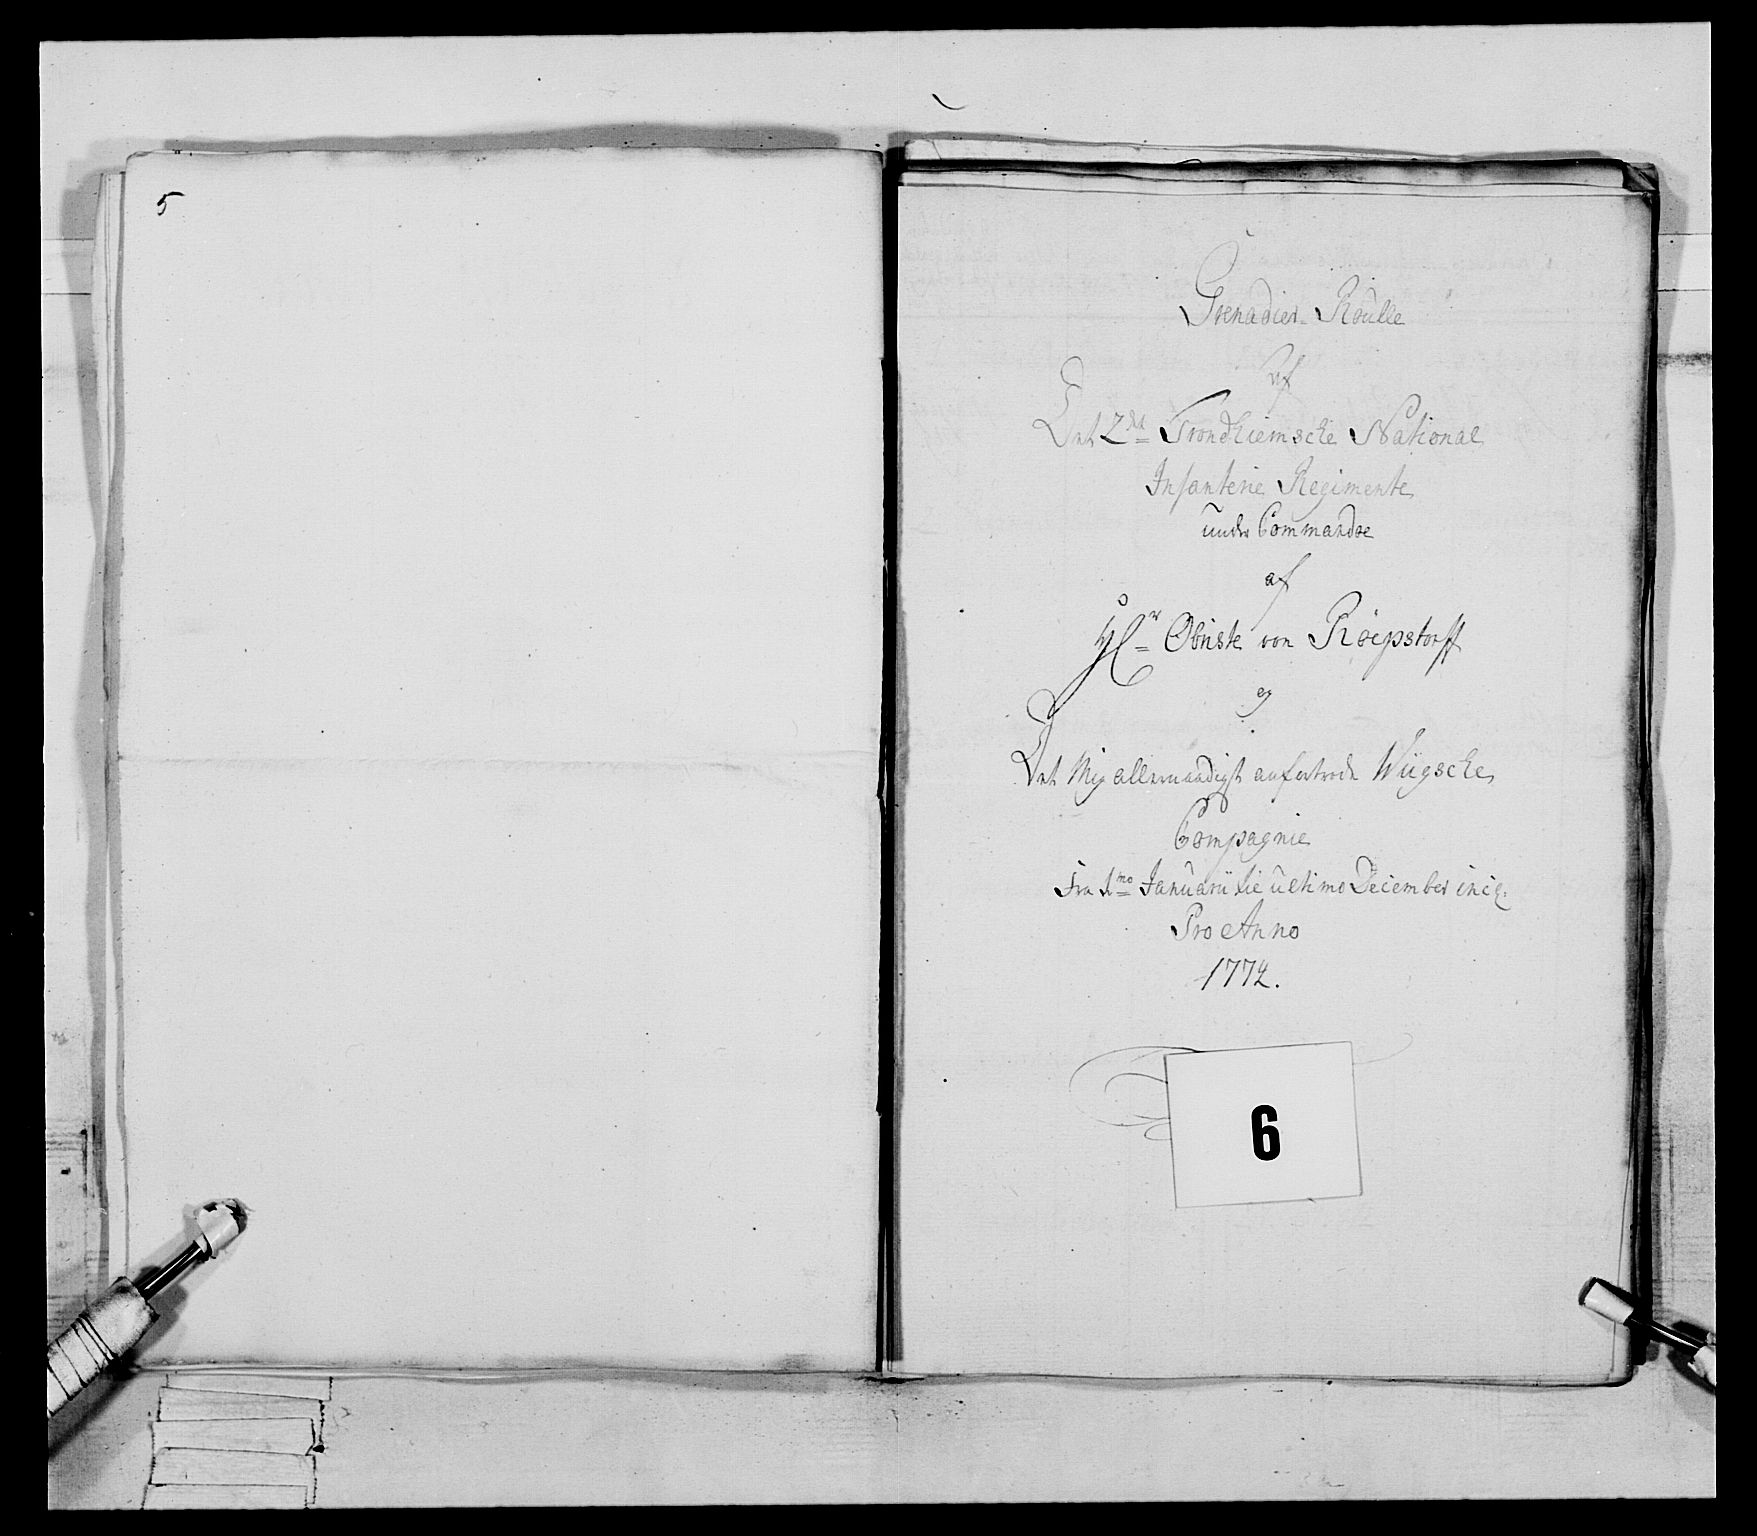 5
Grenadier-Roulle
af
Det 2det Trondhiemsche National
Infanterie Regimente
under Commandoe
af
Hr Obriste von Röepstorff
og
Det Mig allernaadigst anfortrode Wügsche
Compagnie
Fra 1mo Januarii til ultimo December incl:
Pro Anno
1772.
6